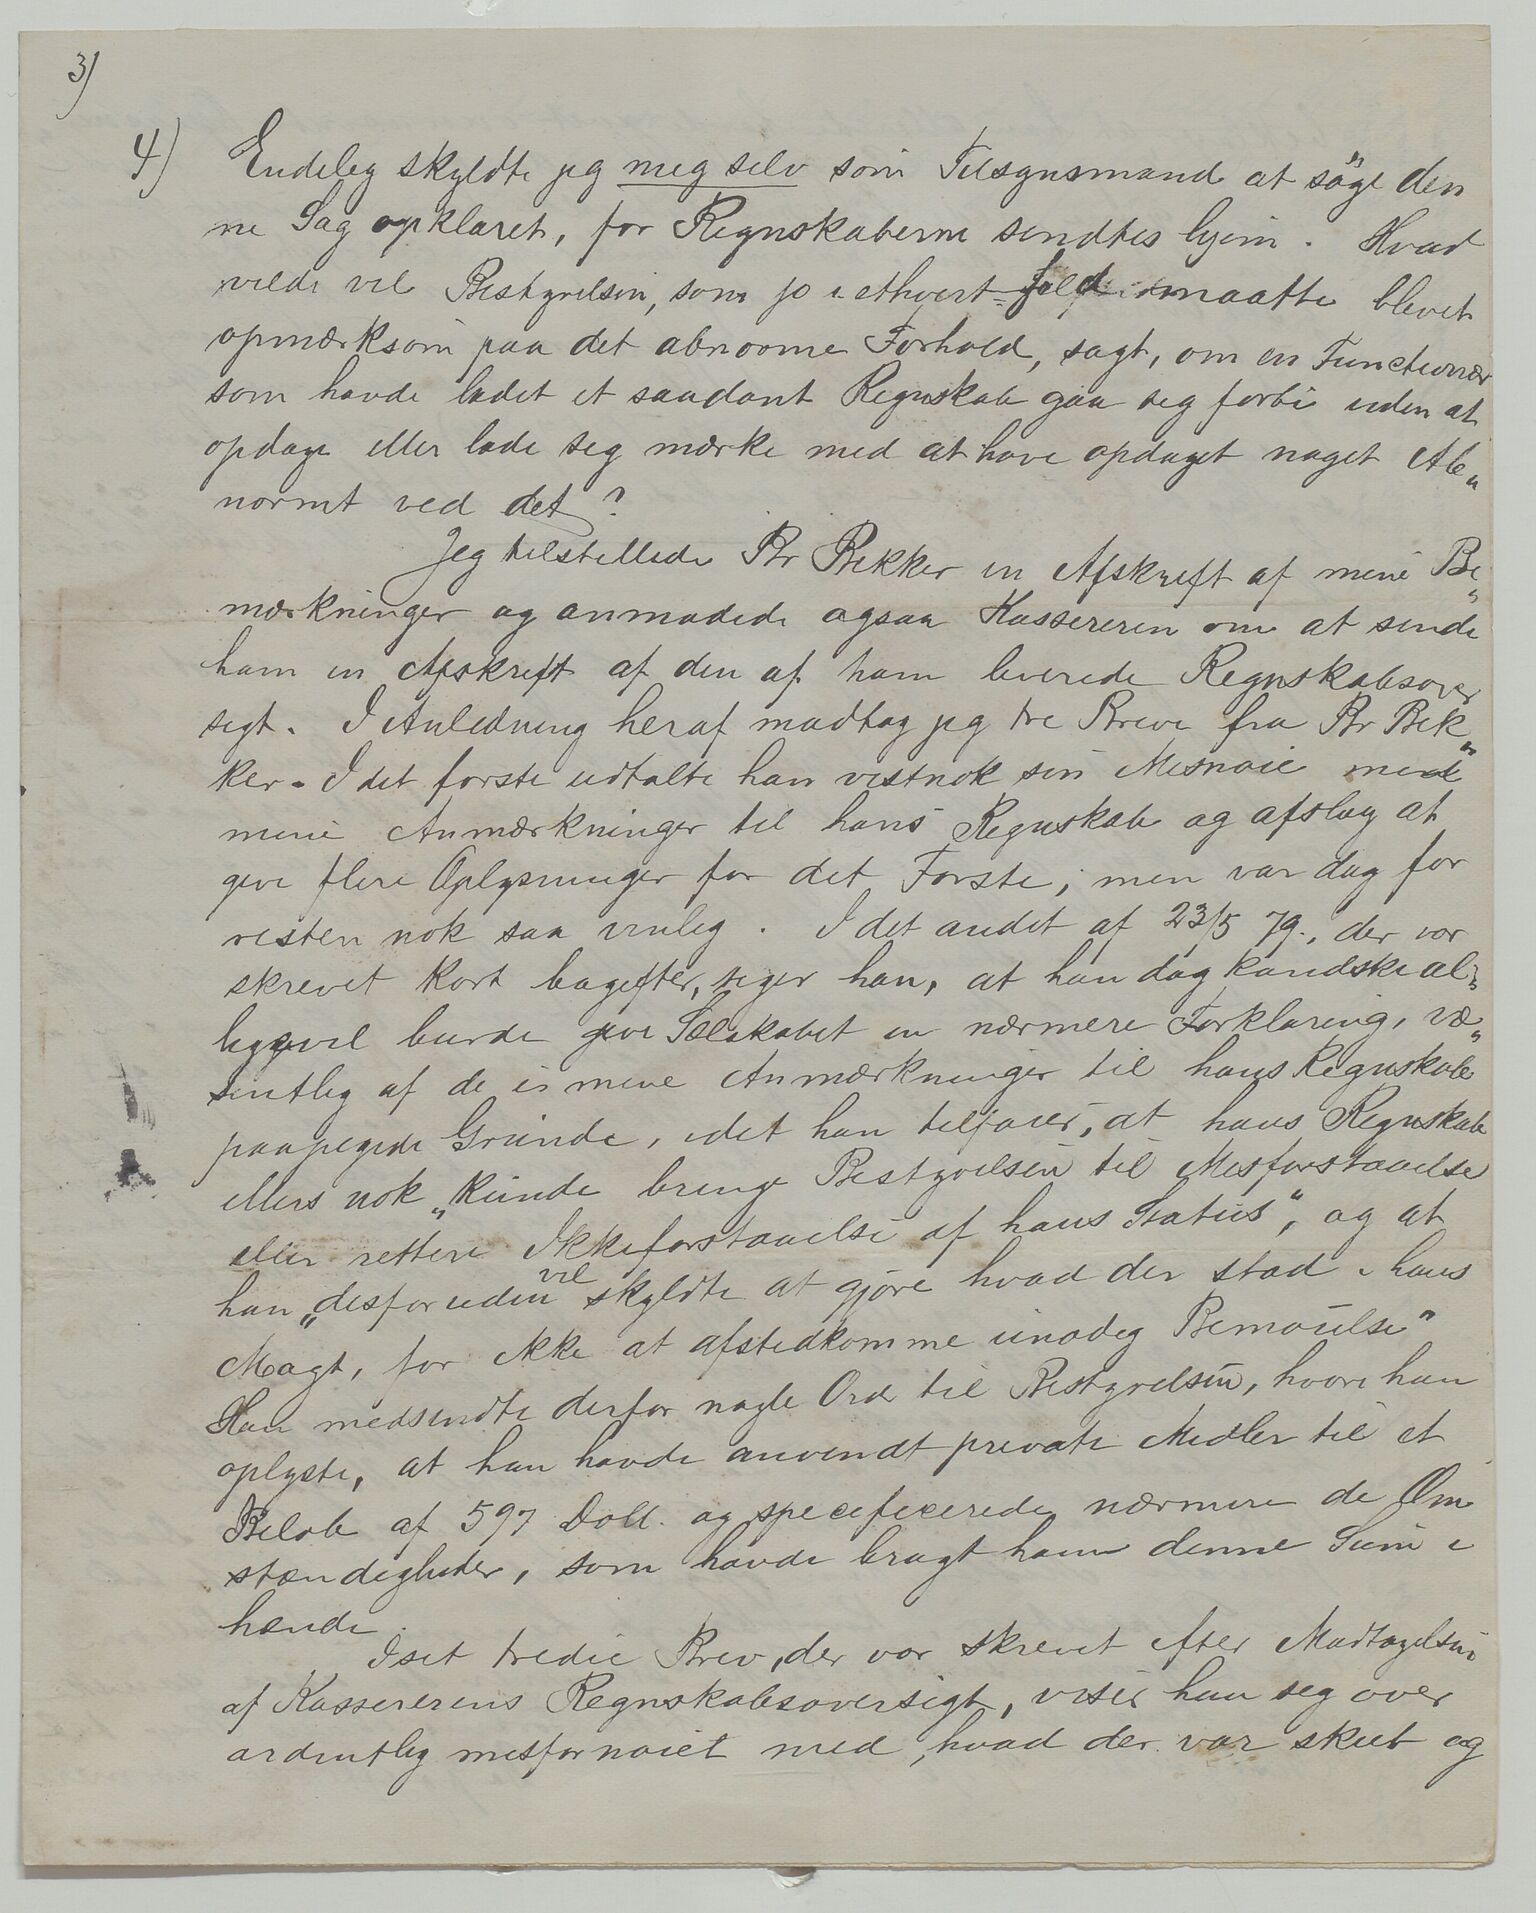 3)
4) Endelig skyldte jeg mig selv som Tilsynsmand at söge den
ne Sag opklaret, før Regnskaberne sendtes hjem. Hvad
vilde vel Bestyrelsen, som jo i ethvert Fald maatte blevet
opmærksom paa det abnorme Forhold, sagt, om en Functionær
som havde ladet et saadant Regnskab gaa sig forbi uden at
opdage eller lade sig mærke med at have opdaget noget Ab„
normt ved det?
Jeg tilstillede Br Bekker en Afskrift af mine Be„
mærkninger og anmodede ogsaa Kassereren om at sende
ham en Afskrift af den af ham leverede Regnskabsover
sigt. I Anledning heraf modtog jeg tre Breve fra Br Bek„
ker. I det første udtalte han vistnok sin Misnøie med
mine Anmærkninger til hans Regnskab og afslog at
give flere Oplysninger for det Første, men var dog for
resten nok saa venlig. I det andet af 23/5 79., der var
skrevet kort bagefter, siger han, at han dog kandske al„
ligevel burde give Selskabet en nærmere Forklaring, væ„
sentlig af de i mine Anmærkninger til hans Regnskab
paapegede Grunde, idet han tilføier, at hans Regnskab
ellers nok „kunde bringe Bestyrelsen til Misforstaaelse
eller rettere Ikkeforstaaelse af hans Status", og at
han „desforuden vel skyldte at gjøre hvad der stod i hans
Magt, for ikke at afstedkomme unødig Bemøielse"
Han medsendte derfor nogle Ord til Bestyrelsen, hvori han
oplyste, at han havde anvendt private Midler til et
Beløb af 597 Doll. og specificerede nærmere de Om
stændigheder, som havde bragt ham denne Sum i
hænde.
I sit tredie Brev, der var skrevet efter Modtagelsen
af Kassererens Regnskabsoversigt, viser han sig over
ordentlig misfornøiet med, hvad der var skeet og